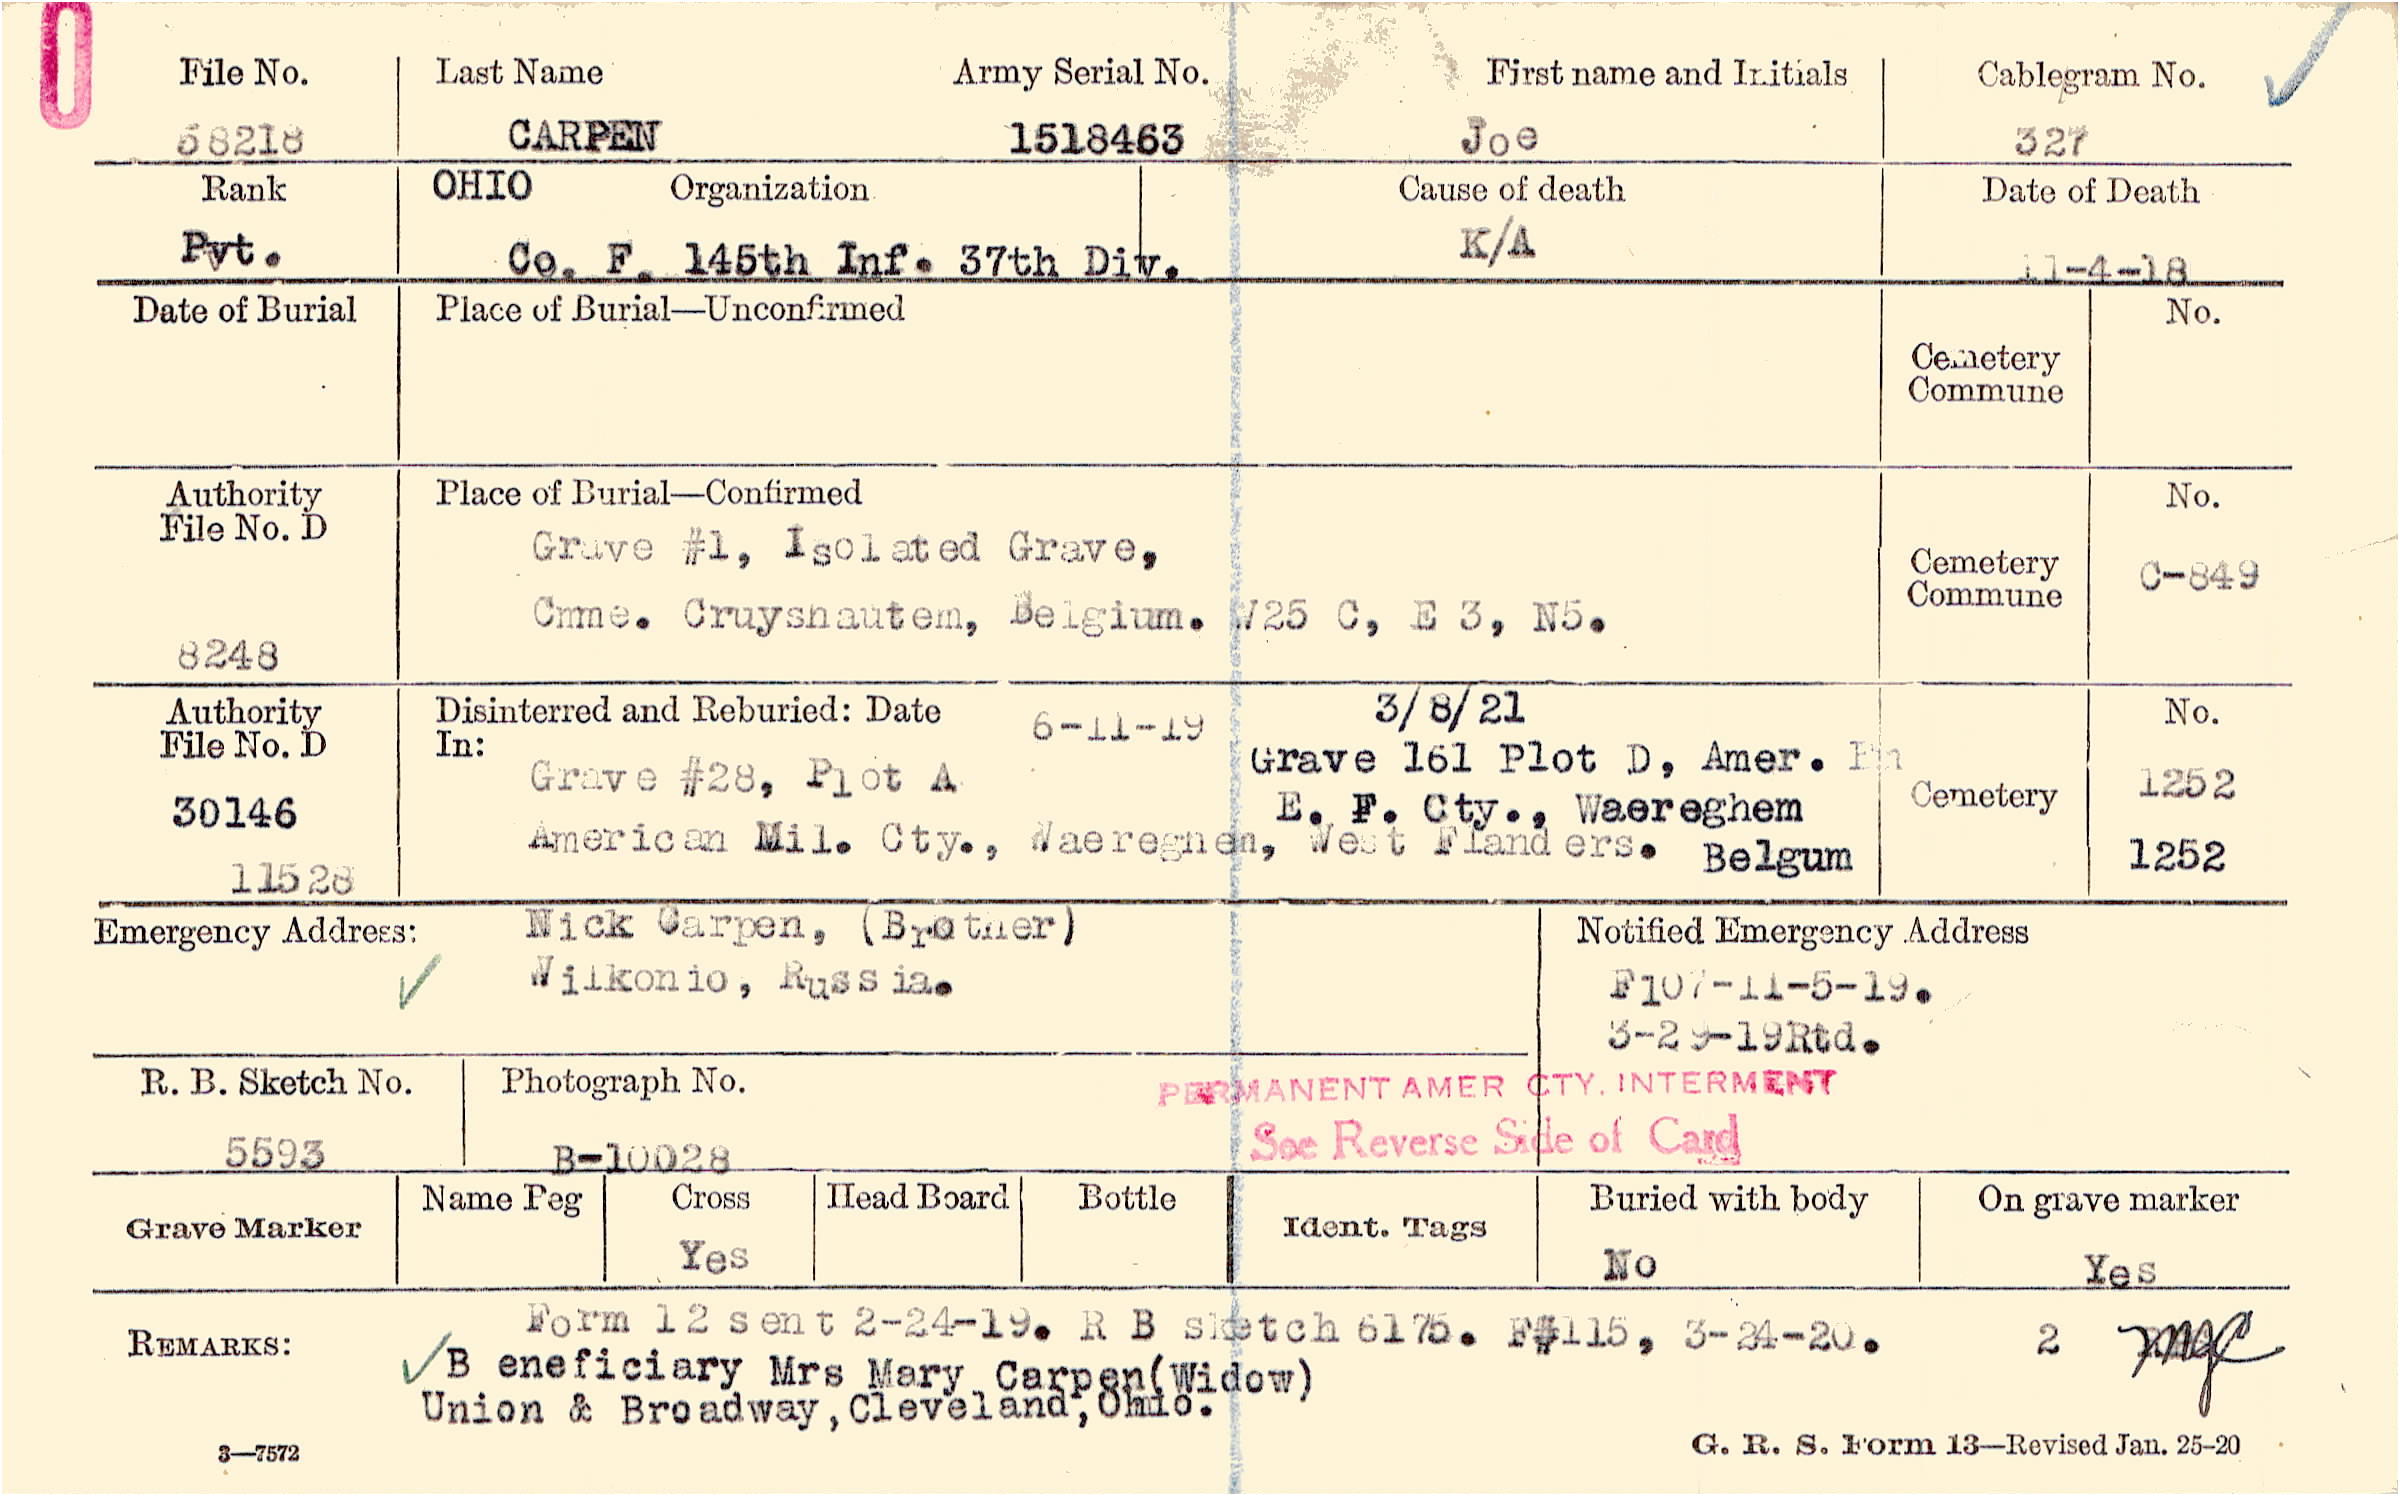 File No. Last Name Army Serial No. First name and Initials Cablegram No.
58218 CARPEN 1518463 Joe 327
Rank OHIO Organization Cause of death Date of Death
Pvt. Co. F. 145th Inf. 37th Div. K/A 11-4-18
Date of Burial Place of Burial—Unconfirmed No.
Cemetery
Commune
Authority Place of Burial—Confirmed No.
File No. D
Grave #1, Isolated Grave,
Cemetery
Commune C-849
Cmne. Cruyshautem, Belgium. V25 C, E 3, N5.
8248
Authority Disinterred and Reburied: Date 6-11-19 3/8/21 No.
File No. D In:
Grave #28, Plot A Grave 161 Plot D, Amer.
30146 E. F. Cty., Waereghem Cemetery 1252
American Mil. Cty., Waereghem, West Flanders. Belgum 1252
11528
Emergency Address: Nick Carpen, (Brother) Notified Emergency Address
Wilkonio, Russia. F107-11-5-19.
3-29-19Rtd.
R. B. Sketch No. Photograph No. PERMANENT AMER CTY. INTERMENT
5593 B-10028 See Reverse Side of Card
Grave Marker Name Peg Cross Head Board Bottle Ident. Tags Buried with body On grave marker
Yes No Yes
REMARKS: Form 12 sent 2-24-19. R B sketch 6175. F#115, 3-24-20. 2
B eneficiary Mrs Mary Carpen(Widow)
Union & Broadway,Cleveland,Ohio.
3—7572 G. R. S. Form 13—Revised Jan. 25-20